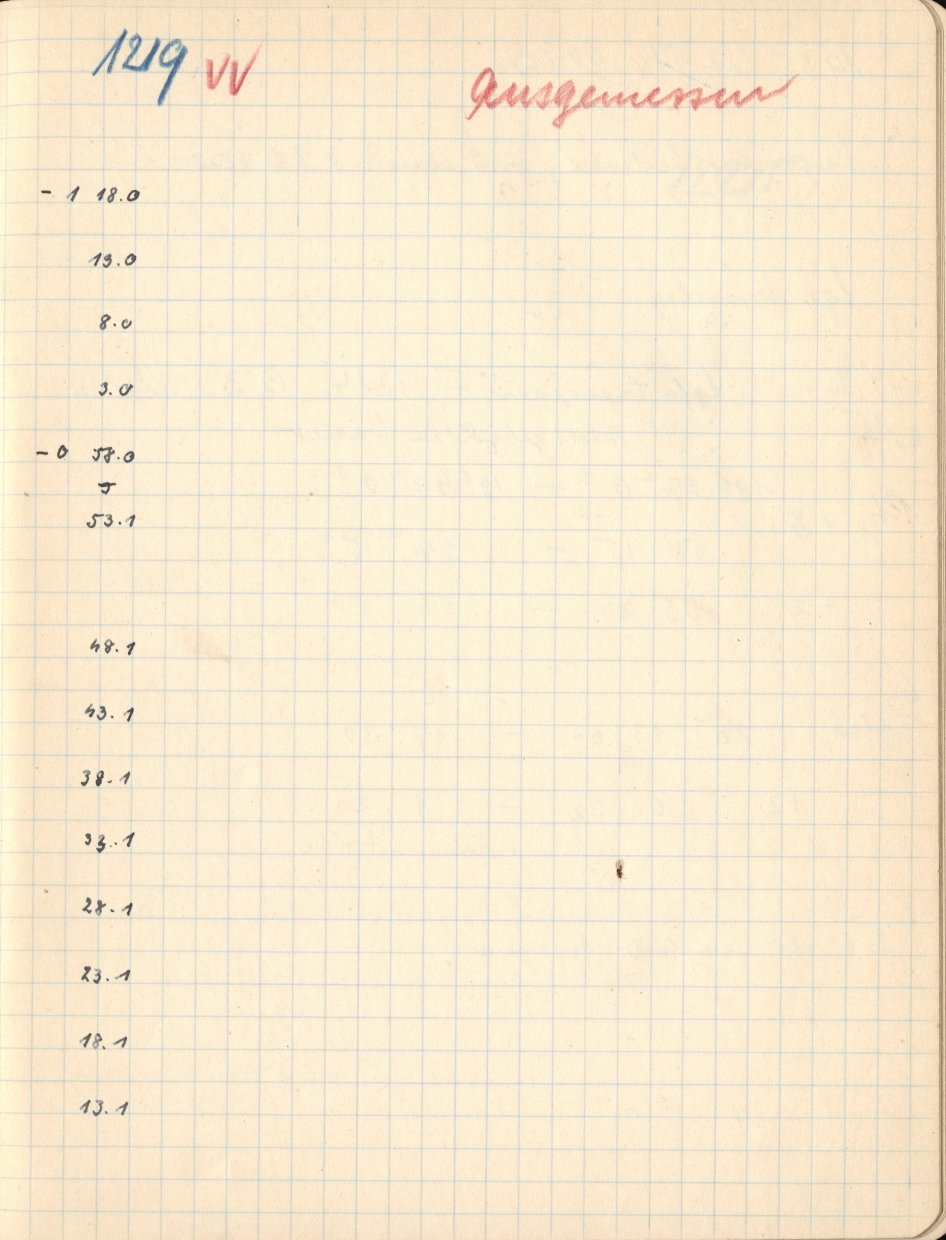 1219 VV Ausgemessen
- 1 18.0
13.0
8.0
3.0
- 0 58.0
5
53.1
48.1
43.1
38.1
33.1
28.1
23.1
18.1
13.1